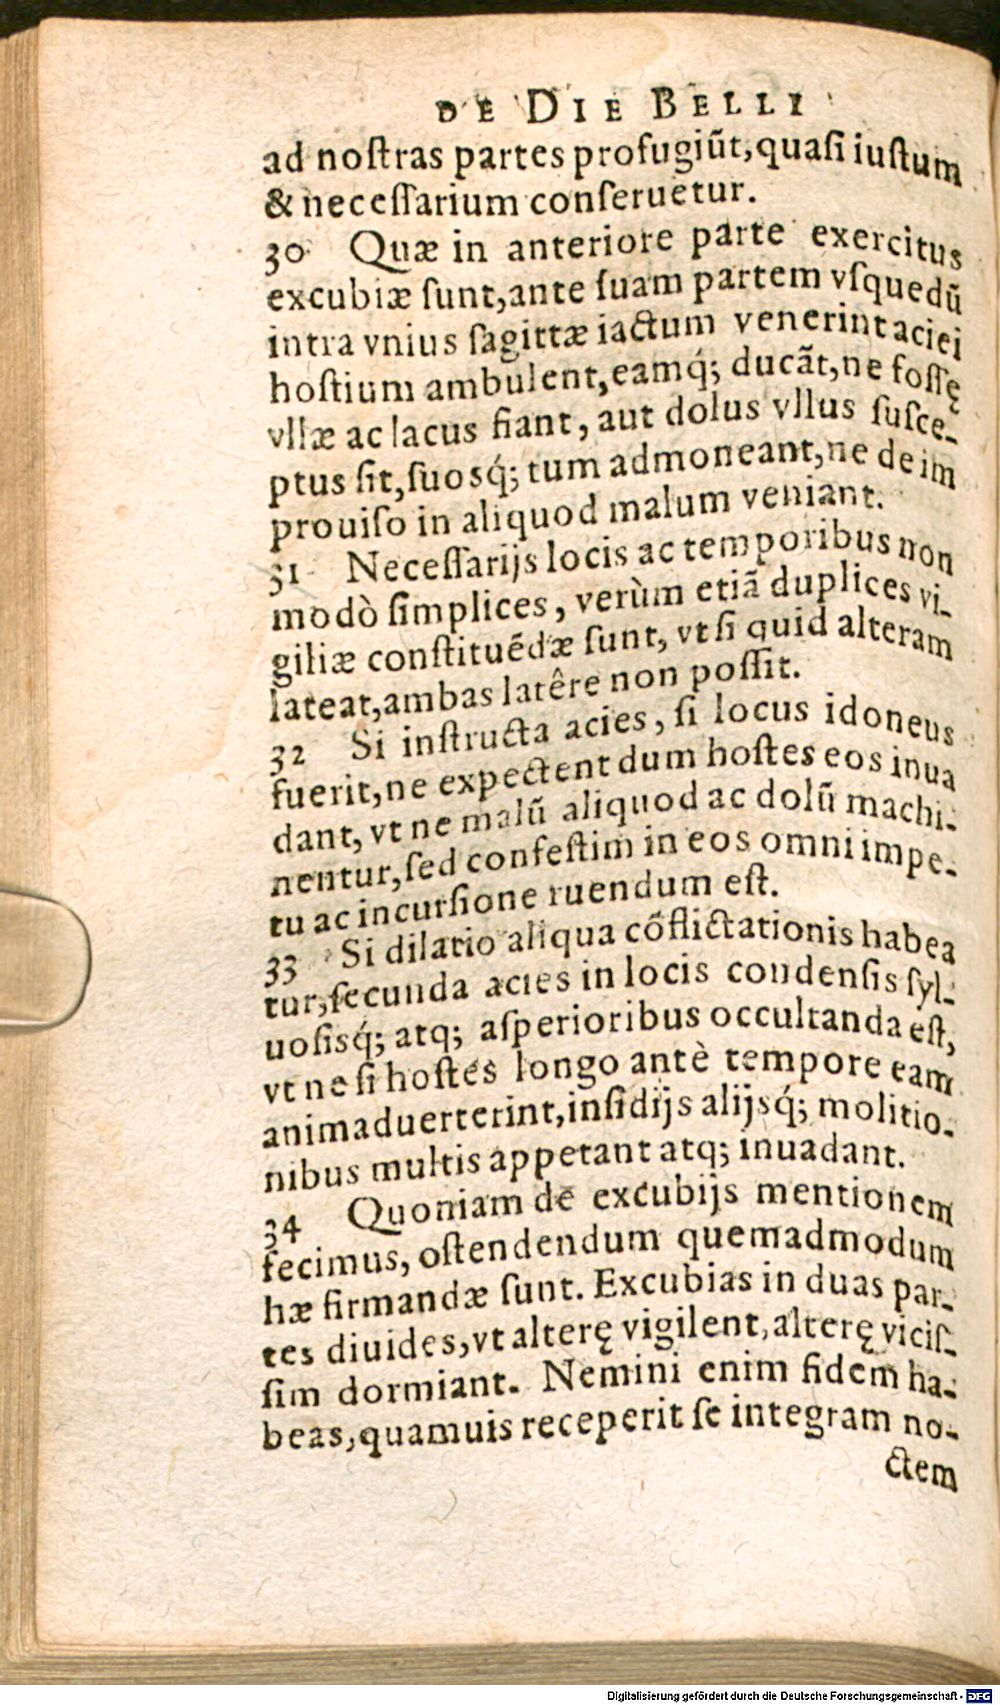 DE DIE BELLI
ad noſtras partes profugiūt, quaſi iuſtum
& neceſſarium conſeruetur.
30 Quæ in anteriore parte exercitus
excubiæ ſunt, ante ſuam partem vſquedū
intra vnius ſagittæ iactum venerint aciei
hoſtium ambulent, eamq́; ducāt, ne foſſę
vllæ ac lacus fiant, aut dolus vllus ſuſce-
ptus ſit, ſuosq́; tum admoneant, ne de im
prouiſo in aliquod malum veniant.
31 Neceſſarijs locis ac temporibus non
modò ſimplices, verùm etiā duplices vi-
giliæ conſtituēdæ ſunt, vt ſi quid alteram
lateat, ambas latêre non poſſit.
32 Si inſtructa acies, ſi locus idoneus
fuerit, ne expectent dum hoſtes eos inua
dant, vt ne malū aliquod ac dolū machi-
nentur, ſed confeſtim in eos omni impe-
tu ac incurſione ruendum eſt.
33 Si dilatio aliqua cōflictationis habea
tur, ſecunda acies in locis condenſis ſyl-
uoſisq́; atq; aſperioribus occultanda eſt,
vt ne ſi hoſtes longo antè tempore eam
animaduerterint, inſidijs alijsq́; molitio-
nibus multis appetant atq; inuadant.
34 Quoniam de excubijs mentionem
fecimus, oſtendendum quemadmodum
hæ firmandæ ſunt. Excubias in duas par-
tes diuides, vt alterę vigilent, alterę viciſ-
ſim dormiant. Nemini enim fidem ha-
beas, quamuis receperit ſe integram no-
ctem
Digitalisierung gefördert durch die Deutsche Forschungsgemeinschaft - DFG